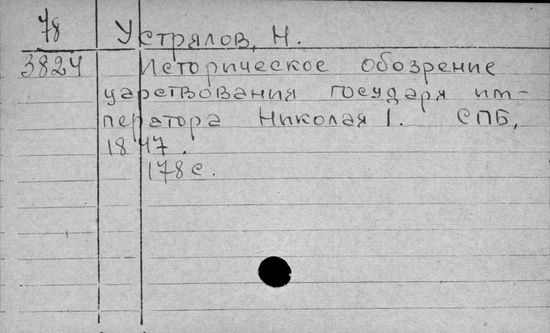 78 Устрялов, Н.
3824 Историческое обозрение
царствования государя им-
ператора Николая I. СПБ,
1847.
178 с.